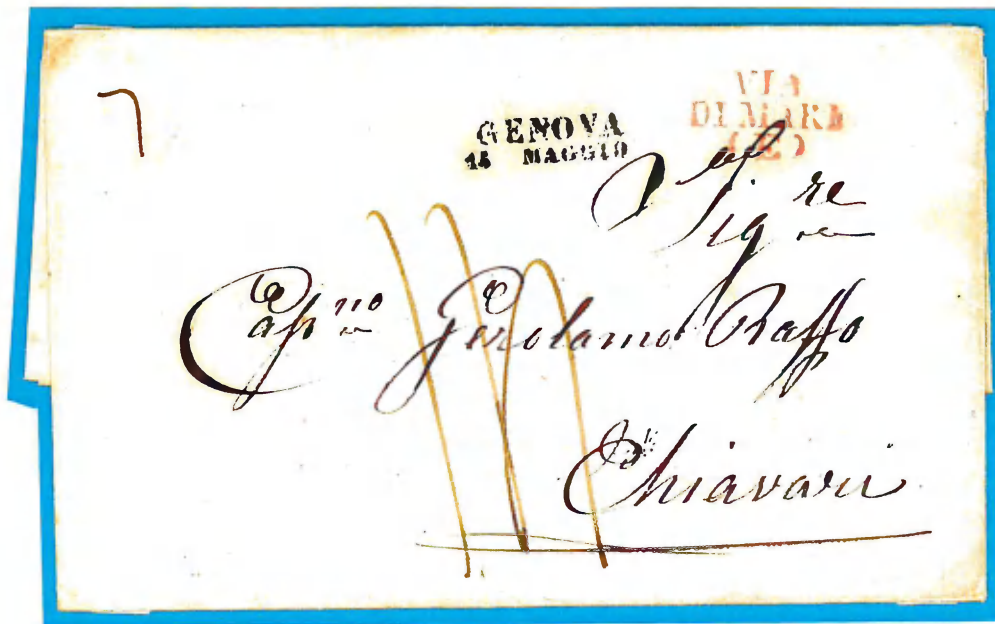 GENOVA
15 MAGGIO
VIA
DI MARE
(E)
Sig.re
Cap.no Gerolamo Raffo
Chiavari